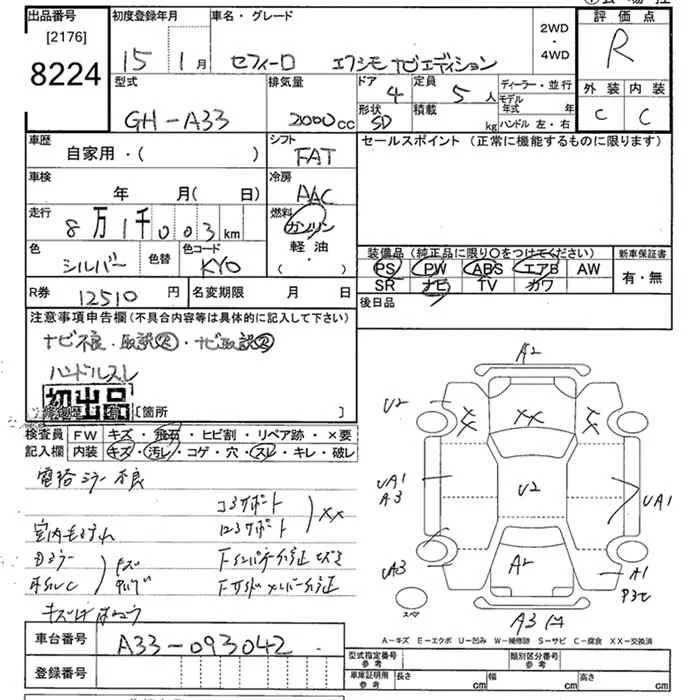 出品番号
[2176]
8224
初度登録年月
15年 1月
車名・グレード
セフィーロ エクシモ ナビエディション
2WD
・
4WD
評価点
R
外装 内装
C C
型式
GH-A33
排気量
2000cc
ドア
4
形状
SD
定員
5人
積載
kg
ディーラー・並行
モデル年式 年
ハンドル 左・右
車歴
自家用・( )
シフト
FAT
セールスポイント(正常に機能するものに限ります)
車検
年 月( 日)
冷房
AAC
走行
8万1千003km
燃料
ガソリン
軽油
( ・ )
色
シルバー
色替
色コード
KY0
装備品(純正品に限り○をつけてください)
PS PW ABS エアB AW
SR ナビ TV カワ
新車保証書
有・無
R券
12510円
名変期限 月 日
後日品
注意事項申告欄(不具合内容等は具体的に記入して下さい)
ナビ不良・取説・ナビ取説
ハンドルスレ
初出品
修復歴 有 [箇所 ]
検査員
記入欄
FW キズ・飛石・ヒビ割・リペア跡・×要
内装 キズ・汚レ・コゲ・穴・スレ・キレ・破レ
電格ミラー不良
コアサポート
ロアサポート
XX
キズ
A2
U2
XX
XX
XX
UA1
A3
U2
UA1
UA3
A2
A1
P3
スペア
A3
A-キズ E-エクボ U-凹み W-補修跡 S-サビ C-腐食 XX-交換済
車台番号
A33-093042
登録番号
型式指定番号
参考
類別区分番号
参考
車庫証明用
参考
長さ cm
幅 cm
高さ cm